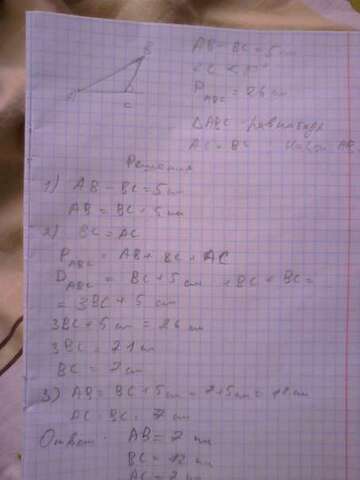 B
A
C
AB - BC = 5 см
P ABC = 26 см
△ABC -
AC = BC AB
Решение
1) AB - BC = 5 см
AB = BC + 5 см
2) BC = AC
P ABC = AB + BC + AC
P ABC = BC + 5 см + BC + BC =
= 3BC + 5 см
3BC + 5 см = 26 см
3BC = 21 см
BC = 7 см
3) AB = BC + 5 см = 7 + 5 см = 12 см
AC = BC = 7 см
Ответ: AB = 7 см
BC = 12 см
AC = 7 см